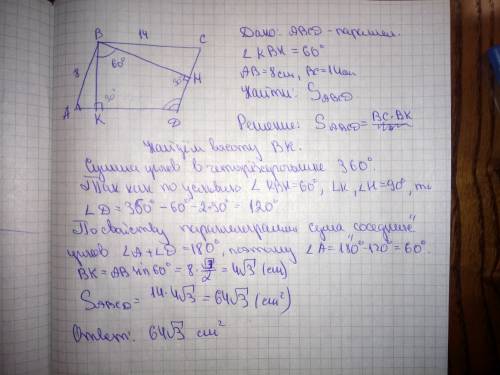 B 14 C
60°
8
H
90°
90°
A K D
Дано: ABCD - паралел.
∠KBH = 60°
AB = 8 cm, BC = 14 cm
Найти: S ABCD
Решение: S ABCD = BC · BK
Найдём высоту BK.
Сумма углов в четырёхугольнике 360°.
Так как по условию ∠KBH = 60°, ∠K, ∠H = 90°, то
∠D = 360° - 60° - 2·90° = 120°
По свойству параллелограмма сумма "соседних"
углов ∠A + ∠D = 180°, поэтому ∠A = 180° - 120° = 60°.
BK = AB sin 60° = 8 · √3/2 = 4√3 (cm)
S ABCD = 14 · 4√3 = 64√3 (cm²)
Ответ: 64√3 cm²